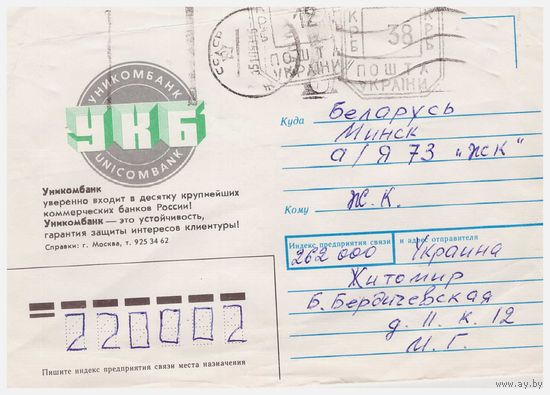 УНИКОМБАНК
УКБ
UNICOMBANK
Уникомбанк
уверенно входит в десятку крупнейших
коммерческих банков России!
Уникомбанк — это устойчивость,
гарантия защиты интересов клиентуры!
Справки: г. Москва, т. 925 34 62
12
ПОШТА
УКРАЇНИ
КРБ
38
КРБ
ПОШТА
УКРАЇНИ
Куда Беларусь
Минск
а/я 73 „ЖК"
Кому Ж.К.
Индекс предприятия связи и адрес отправителя
262000 Украина
Житомир
Б. Бердичевская
д. 11. к. 12
М.Г.
220002
Пишите индекс предприятия связи места назначения
www.ay.by